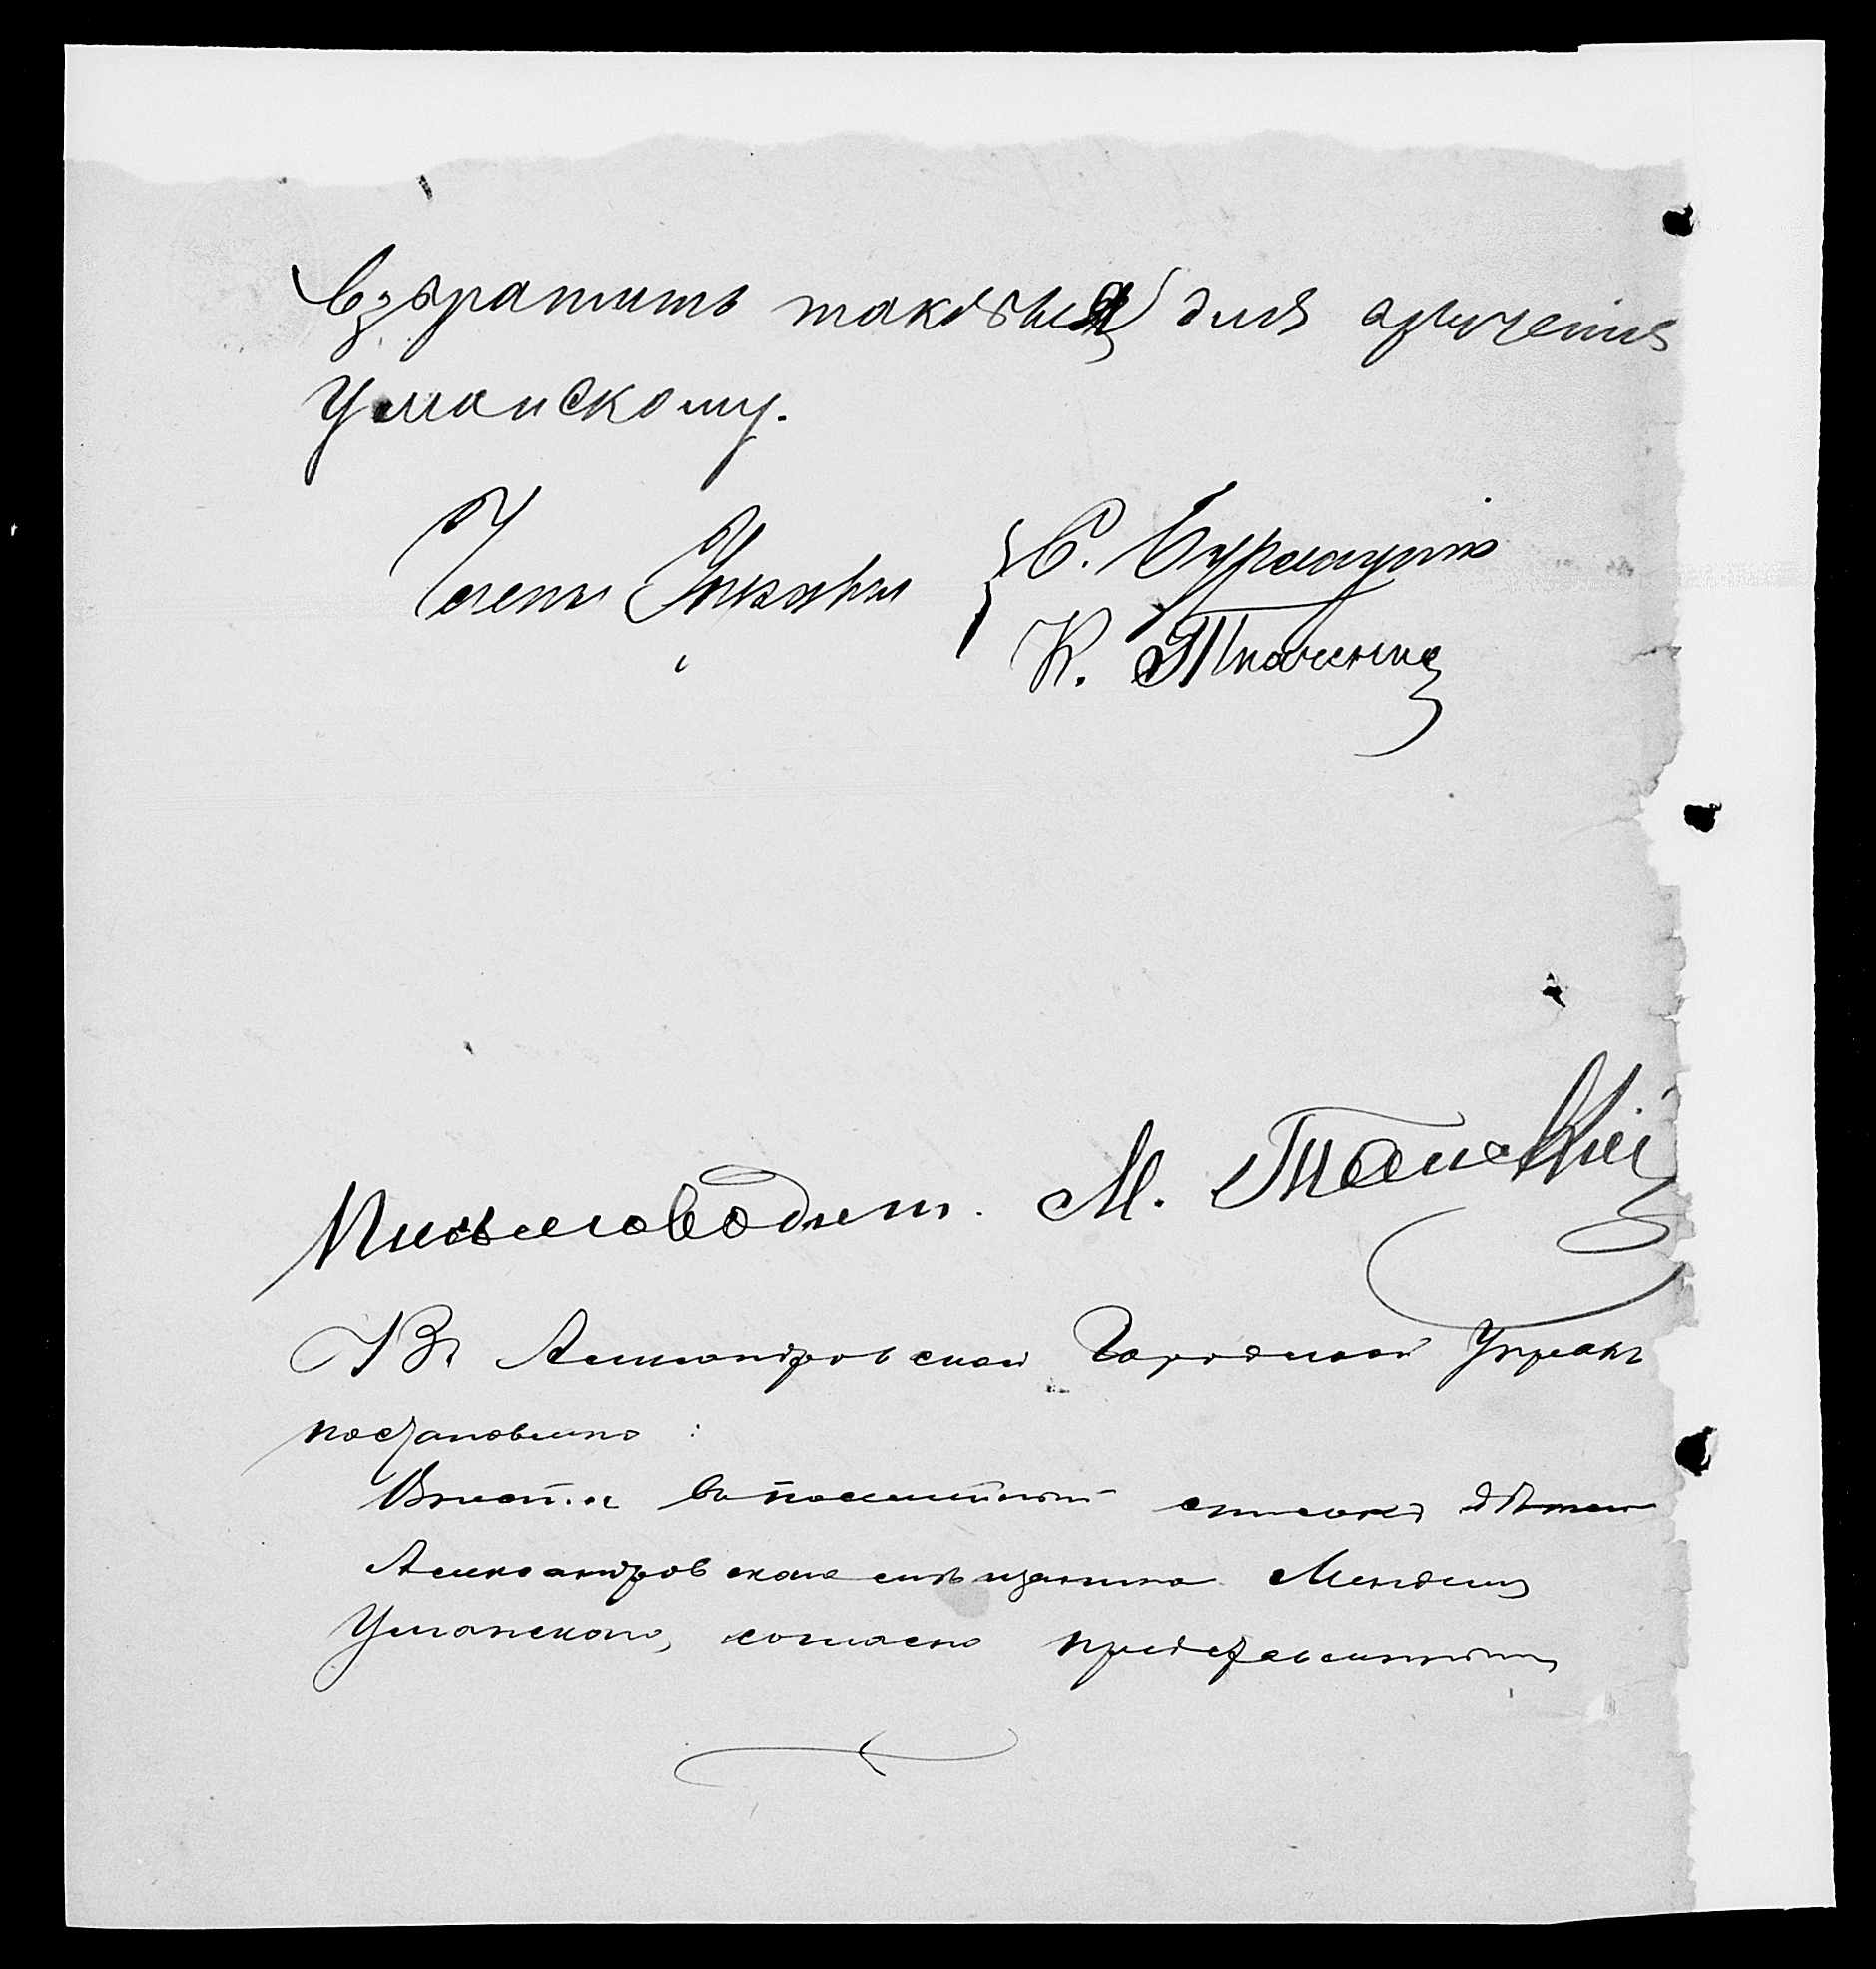 взвратить таковыя для врученія
Уманскому.
Члены Управы
С. Бурлацкій
К. Ткаченко
Письмоводит. М.
Въ Александровской Городской Управѣ
постановлено:
въ посемейный списокъ дѣтей
Александровскаго мѣщанина Менделя
Уманскаго, согласно представленнымъ